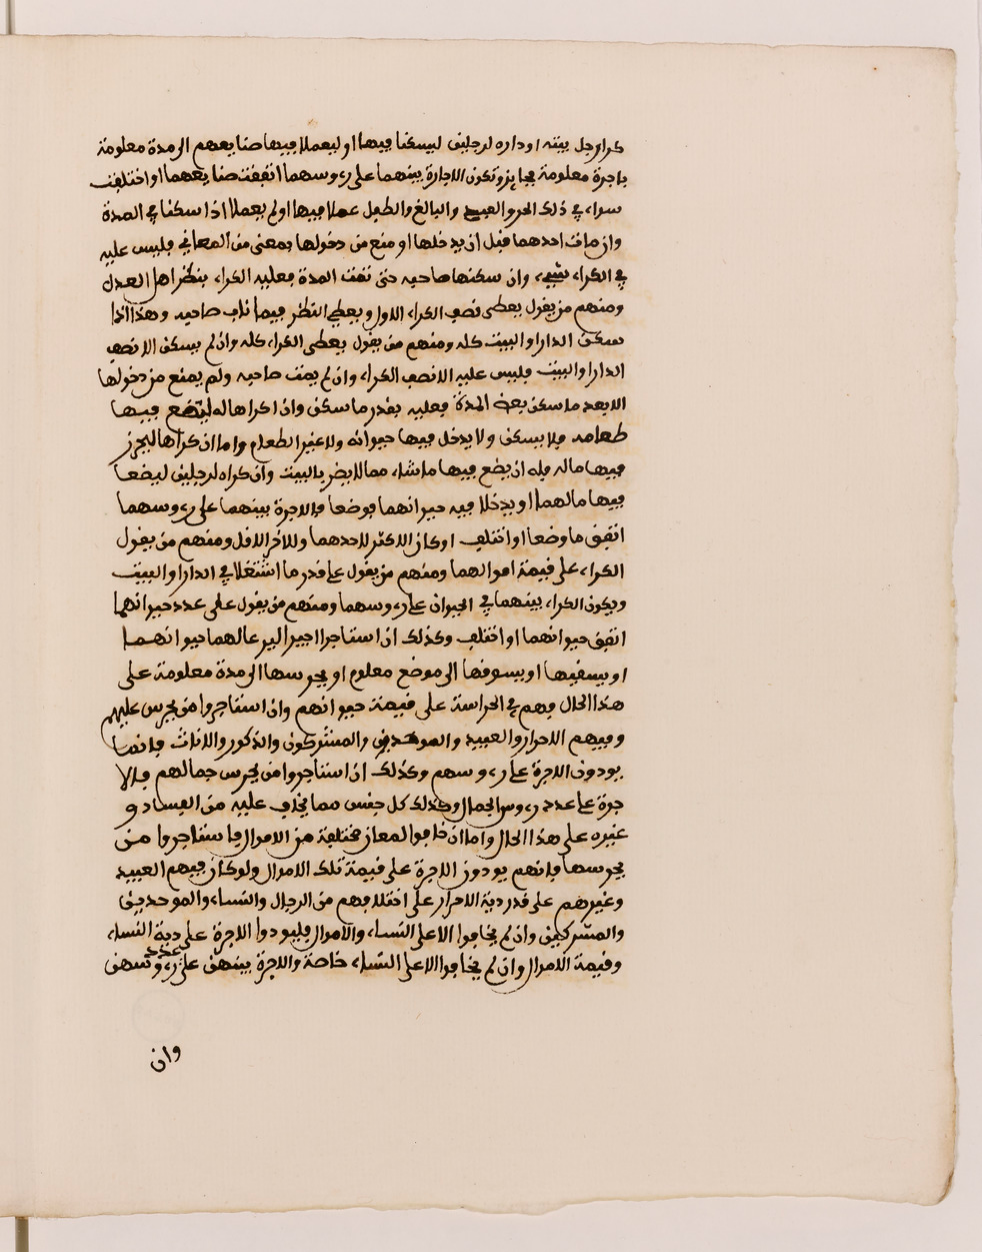 كرا رجل بيته او داره لرجلين ليسكنا فيها او ليعملا فيها صنايعهم الى مدة معلومة
باجرة معلومة فجايز وتكون الاجارة بينهما على رءوسهما اتفقت صنايعهما او اختلفت
سواء في ذلك الحر والعبد والبالغ والطفل عملا فيها او لم يعملا اذا سكنا في المدة
وان مات احدهما قبل ان يدخلها او منع من دخولها بمعنى من المعاني فليس عليه
في الكراء شيء وان سكنها صاحبه حتى تمت المدة فعليه الكراء بنظر اهل العدل
ومنهم من يقول يعطى نصف الكراء الاول ويعطي النظر فيما ناب صاحبه وهذا اذا
سكن الدار او البيت كله ومنهم من يقول يعطى الكراء كله وان لم يسكن الا نصف
الدار او البيت فليس عليه الا نصف الكراء وان لم يمت صاحبه ولم يمنع من دخولها
الا بعد ما سكن بعض المدة فعليه بقدر ما سكن وان اكراها له ليضع فيها
طعامه فلا يسكن ولا يدخل فيها حيوانه ولا غير الطعام واما ان كراها ليحرز
فيها ماله فله ان يضع فيها ما شاء مما لا يضر بالبيت وان كراه لرجلين ليضعا
فيها مالهما او يدخلا فيه حيوانهما فوضعا فالاجرة بينهما على رءوسهما
اتفق ما وضعا او اختلف او كان الاكثر لاحدهما وللاخر الاقل ومنهم من يقول
الكراء على قيمة اموالهما ومنهم من يقول على قدر ما اشتغلا في الدار او البيت
ويكون الكراء بينهما في الحيوان على رءوسهما ومنهم من يقول على عدد حيوانهما
اتفق حيوانهما او اختلف وكذلك ان استاجرا اجيرا ليرعا لهما حيوانهما
او يسقيها او يسوقها الى موضع معلوم او يحرسها الى مدة معلومة على
هذا الحال فهم في الحراسة على قيمة حيوانهم وان استاجروا من يحرس عليهم
وفيهم الاحرار والعبيد والموحدين والمشركون والذكور والاناث فانما
يودون الاجرة على رءوسهم وكذلك ان استاجروا من يحرس جمالهم فالا
جرة على عدد رءوس الجمال وكذلك كل جنس مما يخاف عليه من الفساد و
غيره على هذا الحال واما ان خافوا لمعان مختلفة من الاموال فاستاجروا من
يحرسها فانهم يودون الاجرة على قيمة تلك الاموال ولو كان فيهم العبيد
وغيرهم على قدر دية الاحرار على اختلافهم من الرجال والنساء والموحدين
والمشركين وان لم يخافوا الا على النساء والاموال فليودوا الاجرة على دية النساء
وقيمة الاموال وان لم يخافوا الا على النساء خاصة والاجرة بينهن على عدد رءوسهن
وان